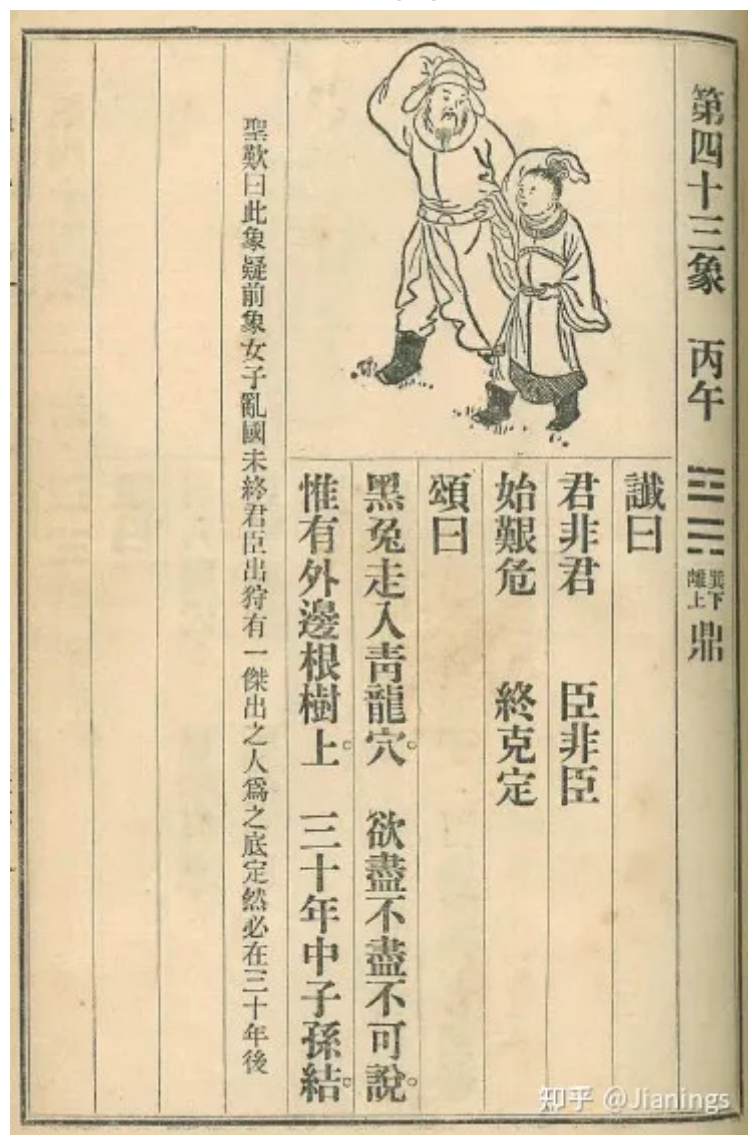 第四十三象 丙午 巽下離上 鼎
讖曰
君非君 臣非臣
始艱危 終克定
頌曰
黑兔走入靑龍穴。 欲盡不盡不可說。
惟有外邊根樹上。 三十年中子孫結。
聖歎曰此象疑前象女子亂國未終君臣出狩有一傑出之人爲之底定然必在三十年後
知乎 @Jianings